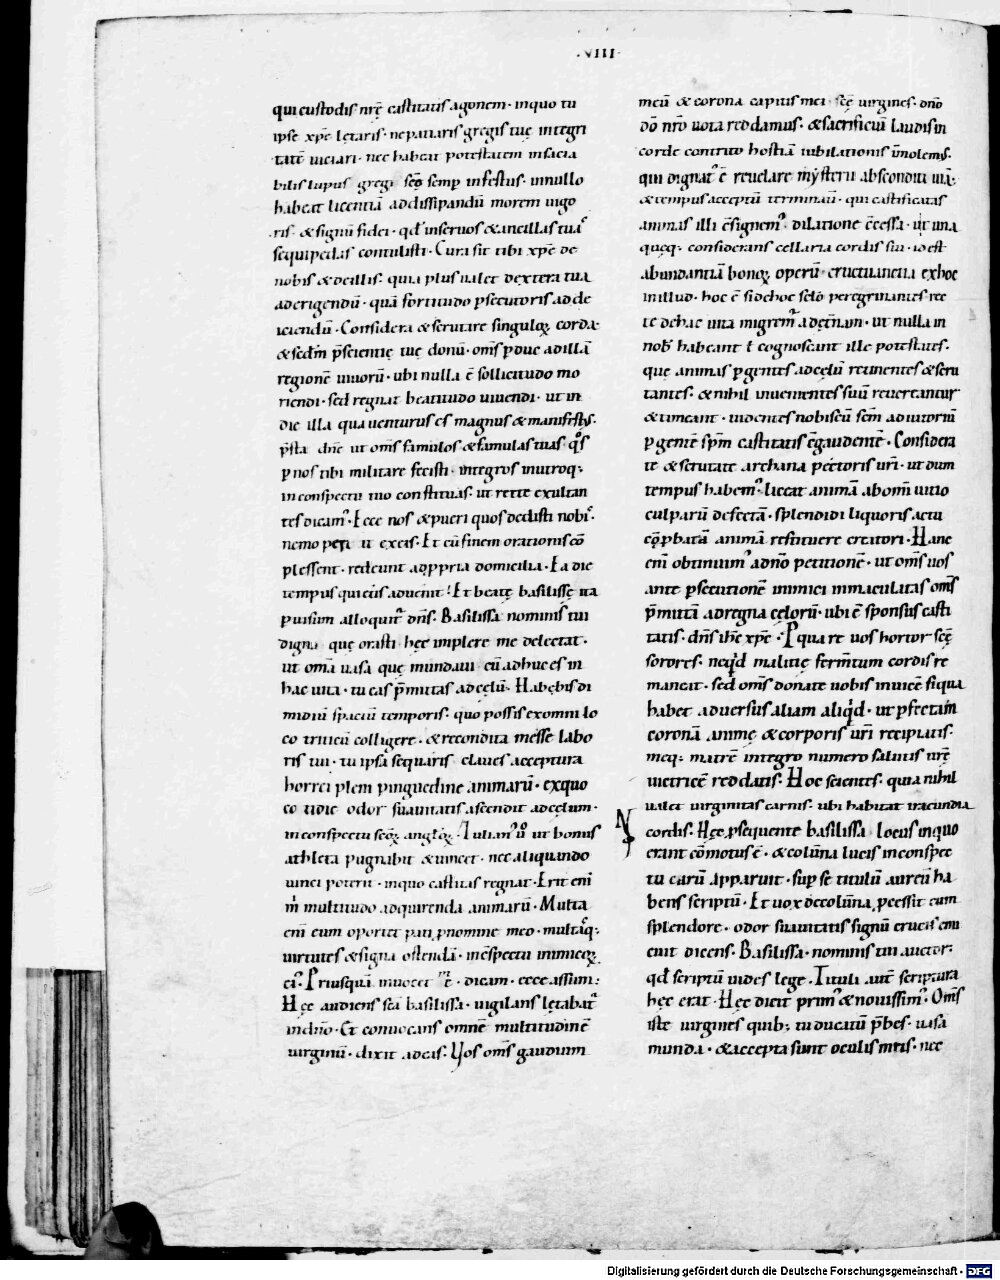 ·VIII·
qui custodis nr̄ę castitatis agonem· in quo tu
ipse xp̄e lętaris· ne patiaris gregis tuę integri
tatē uiciari· nec habeat potestatem insacia
bilis lupus gregi sc̄o semp̱ infestus· in nullo
habeat licentiā ad dissipandū morem uigo
ris· & signū fidei· qd̄ in seruos & ancillas tuas
sequipedas contulisti· Cura sit tibi xp̄e de
nobis & de illis· quia plus ualet dextera tua
ad erigendū· quā fortitudo p̱secutoris ad de
iciendū· Considera & scrutare singuloꝝ corda·
& sedm̄ p̄scientię tuę donū· om̄s p̱duc ad illā
regionē uiuorū· ubi nulla ē sollicitudo mo
riendi· sed regnat beatitudo uiuendi· ut in
die illa qua uenturus es magnus & manifestus·
p̄sta dn̄e ut om̄s famulos & famulas tuas· q°s
p̱ nos tibi militare fecisti· integros in utroq;
in conspectu tuo constituas· ut recte exultan
tes dicam᷒· Ecce nos & pueri quos dedisti nobis·
nemo periit ex eis· Et cū finem orationis cō
plessent· redeunt ad p̱pria domicilia· Ea die
tempus qui eis aduenit· Et beatę basilissę ita
p̱ uisum alloquit᷑ dn̄s· Basilissa nominis tui
digna quę orasti hęc implere me delectat·
ut om̄a uasa quę mundaui cū adhuc es in
hac uita· tu eas p̄mittas ad cęlū· Habebis di
midiū spaciū temporis· quo possis ex omni lo
co triticū colligere· & recondita messe labo
ris tui· tu ipsa sequaris claues acceptura
horrei pleni pinguedine animarū· ex quo
co tidie odor suauitatis ascendit ad cęlum·
in conspectu sc̄oꝝ angl̄oꝝ· Iulian᷒ u° ut bonus
athleta pugnabit & uincet· nec aliquando
uinci poterit· in quo castitas regnat· Erit eni
m̄ multitudo adquirenda animarū· Multa
eni eum oportet pati p̱ nomine meo· multasq;
uirtutes & signa ostendā· in c̄spectu inimicoꝝ
ei᷒· Priusquā inuocet me· dicam· ecce assum·
Hęc audiens sc̄a basilissa· uigilans lętabat᷑
in dn̄o· Et conuocans omnē multitudinē
uirginū· dixit ad eas· Vos om̄s gaudium
meū & corona capitis mei· sc̄ę uirgines· dn̄o
dō nr̄o uota reddamus· & sacrificiū laudis in
corde contrito hostiā iubilationis immolem᷒·
qui dignat᷒ ē reuelare mysterii absconditi uiā·
& tempus acceptū terminauit· qui castificatas
animas illi c̄signem᷒· dilatione c̄cessa· ut una
quęq; considerans cellaria cordis sui· id est
abundantiā bonoꝝ operū· eructuantia ex hoc
in illud· hoc ē si de hoc scl̄o peregrinantes rec
te de hac uita migrem᷒ ad ęt̄nam· ut nulla in
nob̄ habeant t̄ cognoscant ille potestates·
quę animas p̱gentes ad cęlū retinentes & scru
tantes· & nihil inuenientes suū reuertantur
& timeant· uidentes nobiscū sem̄ adiutoriū
p̱gentē sp̄m castitatis c̄gaudentē· Considera
te & scrutate archana pectoris ur̄i· ut dum
tempus habem᷒· liceat animā ab om̄i uitio
culparū defectā· splendidi liquoris actu
cōp̱batā animā restituere creatori· Hanc
eni obtinuim᷒ a dn̄o petitionē· ut om̄s uos
ante p̱secutionē inimici immaculatas om̄s
p̄mittā ad regna cęlorū· ubi ē sponsus casti
tatis· dn̄s ih̄c xp̄c· Qua re uos hortor sc̄ę
sorores· ne qd̄ malitię ferm̄tum cordis re
maneat· sed om̄s donate uobis inuicē si qua
habet aduersus aliam aliqd̄· ut p̱fectam
coronā animę & corporis ur̄i recipiatis·
meq; matrē integro numero salutis ur̄ę
uictricē reddatis· Hoc scientes· quia nihil
ualet uirginitas carnis· ubi habitat iracundia
cordis· Hęc p̱sequente basilissa locus in quo
erant cōmotus ē· & colūna lucis in conspec
tu earū apparuit· sup̱ se titulū aureū ha
bens scriptū· Et uox de colūna p̱cessit cum
splendore· odor suauitatis signū crucis emi
cuit dicens· Basilissa· nominis tui auctor·
qd̄ scriptū uides lege· Tituli aut̄ scriptura
hęc erat· Hęc dicit prim᷒ & nouissim᷒· Om̄s
istę uirgines quib; tu ducatū p̄bes· uasa
munda· & accepta sunt oculis meis· nec